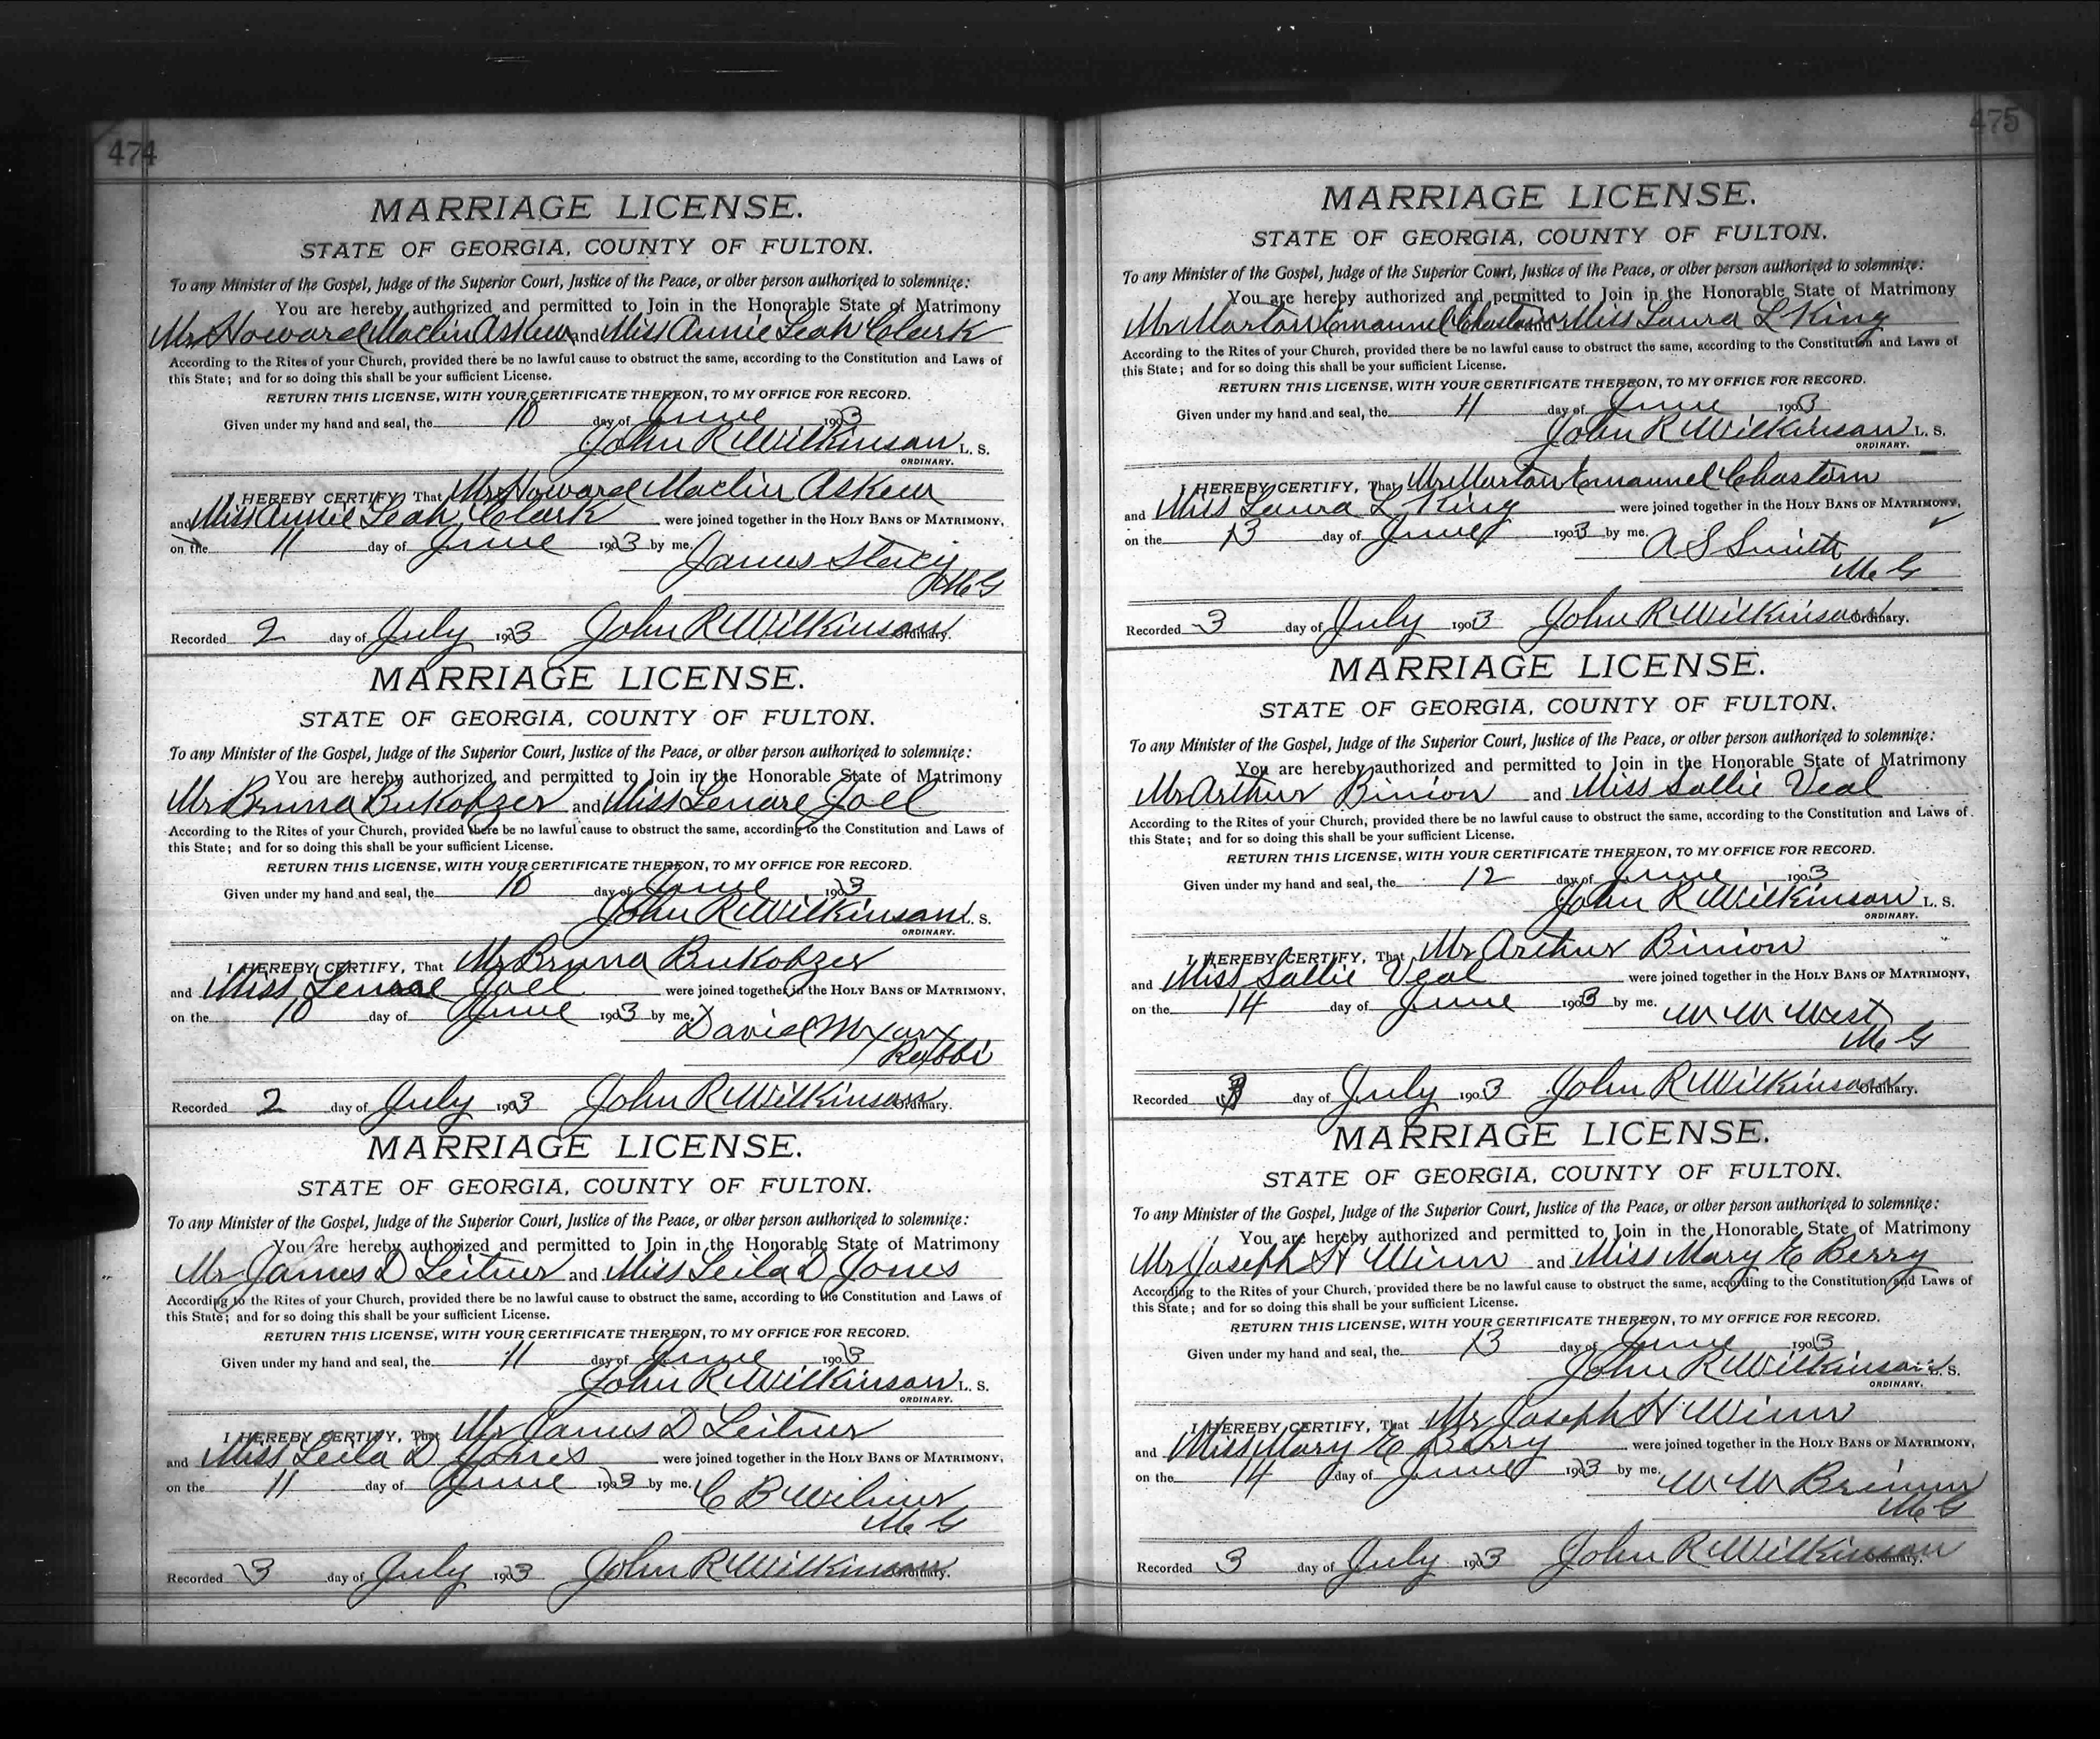 474
MARRIAGE LICENSE.
STATE OF GEORGIA, COUNTY OF FULTON.
To any Minister of the Gospel, Judge of the Superior Court, Justice of the Peace, or other person authorized to solemnize:
You are hereby authorized and permitted to Join in the Honorable State of Matrimony
Mr Howard Maclin Askew and Miss Annie Leah Clark
According to the Rites of your Church, provided there be no lawful cause to obstruct the same, according to the Constitution and Laws of
this State; and for so doing this shall be your sufficient License.
RETURN THIS LICENSE, WITH YOUR CERTIFICATE THEREON, TO MY OFFICE FOR RECORD.
Given under my hand and seal, the 10 day of June 1903
John R Wilkinson L. S.
ORDINARY.
I HEREBY CERTIFY, That Mr Howard Maclin Askew
and Miss Annie Leah Clark were joined together in the HOLY BANS OF MATRIMONY,
on the 11 day of June 1903 by me. James Stacy
M G
Recorded 2 day of July 1903 John R Wilkinson Ordinary.
MARRIAGE LICENSE.
STATE OF GEORGIA, COUNTY OF FULTON.
To any Minister of the Gospel, Judge of the Superior Court, Justice of the Peace, or other person authorized to solemnize:
You are hereby authorized and permitted to Join in the Honorable State of Matrimony
Mr Bruna Bukofzer and Miss Lenore Joel
According to the Rites of your Church, provided there be no lawful cause to obstruct the same, according to the Constitution and Laws of
this State; and for so doing this shall be your sufficient License.
RETURN THIS LICENSE, WITH YOUR CERTIFICATE THEREON, TO MY OFFICE FOR RECORD.
Given under my hand and seal, the 10 day of June 1903
John R Wilkinson L. S.
ORDINARY.
I HEREBY CERTIFY, That Mr Bruna Bukofzer
and Miss Lenore Joel were joined together in the HOLY BANS OF MATRIMONY,
on the 10 day of June 1903 by me. David Marx
Rabbi
Recorded 2 day of July 1903 John R Wilkinson Ordinary.
MARRIAGE LICENSE.
STATE OF GEORGIA, COUNTY OF FULTON.
To any Minister of the Gospel, Judge of the Superior Court, Justice of the Peace, or other person authorized to solemnize:
You are hereby authorized and permitted to Join in the Honorable State of Matrimony
Mr James D Leitner and Miss Leila D Jones
According to the Rites of your Church, provided there be no lawful cause to obstruct the same, according to the Constitution and Laws of
this State; and for so doing this shall be your sufficient License.
RETURN THIS LICENSE, WITH YOUR CERTIFICATE THEREON, TO MY OFFICE FOR RECORD.
Given under my hand and seal, the 11 day of June 1903
John R Wilkinson L. S.
ORDINARY.
I HEREBY CERTIFY, That Mr James D Leitner
and Miss Leila D Jones were joined together in the HOLY BANS OF MATRIMONY,
on the 11 day of June 1903 by me. C B Wilmer
M G
Recorded 3 day of July 1903 John R Wilkinson Ordinary.
475
MARRIAGE LICENSE.
STATE OF GEORGIA, COUNTY OF FULTON.
To any Minister of the Gospel, Judge of the Superior Court, Justice of the Peace, or other person authorized to solemnize:
You are hereby authorized and permitted to Join in the Honorable State of Matrimony
Mr Marton Emanuel Chastain and Miss Laura L King
According to the Rites of your Church, provided there be no lawful cause to obstruct the same, according to the Constitution and Laws of
this State; and for so doing this shall be your sufficient License.
RETURN THIS LICENSE, WITH YOUR CERTIFICATE THEREON, TO MY OFFICE FOR RECORD.
Given under my hand and seal, the 11 day of June 1903
John R Wilkinson L. S.
ORDINARY.
I HEREBY CERTIFY, That Mr Marton Emanuel Chastain
and Miss Laura L King were joined together in the HOLY BANS OF MATRIMONY,
on the 13 day of June 1903 by me. A S Smith
M G
Recorded 3 day of July 1903 John R Wilkinson Ordinary.
MARRIAGE LICENSE.
STATE OF GEORGIA, COUNTY OF FULTON.
To any Minister of the Gospel, Judge of the Superior Court, Justice of the Peace, or other person authorized to solemnize:
You are hereby authorized and permitted to Join in the Honorable State of Matrimony
Mr Arthur Binion and Miss Sallie Veal
According to the Rites of your Church, provided there be no lawful cause to obstruct the same, according to the Constitution and Laws of
this State; and for so doing this shall be your sufficient License.
RETURN THIS LICENSE, WITH YOUR CERTIFICATE THEREON, TO MY OFFICE FOR RECORD.
Given under my hand and seal, the 12 day of June 1903
John R Wilkinson L. S.
ORDINARY.
I HEREBY CERTIFY, That Mr Arthur Binion
and Miss Sallie Veal were joined together in the HOLY BANS OF MATRIMONY,
on the 14 day of June 1903 by me. W W West
M G
Recorded 3 day of July 1903 John R Wilkinson Ordinary.
MARRIAGE LICENSE.
STATE OF GEORGIA, COUNTY OF FULTON.
To any Minister of the Gospel, Judge of the Superior Court, Justice of the Peace, or other person authorized to solemnize:
You are hereby authorized and permitted to Join in the Honorable State of Matrimony
Mr Joseph H Winn and Miss Mary E Berry
According to the Rites of your Church, provided there be no lawful cause to obstruct the same, according to the Constitution and Laws of
this State; and for so doing this shall be your sufficient License.
RETURN THIS LICENSE, WITH YOUR CERTIFICATE THEREON, TO MY OFFICE FOR RECORD.
Given under my hand and seal, the 13 day of June 1903
John R Wilkinson L. S.
ORDINARY.
I HEREBY CERTIFY, That Mr Joseph H Winn
and Miss Mary E Berry were joined together in the HOLY BANS OF MATRIMONY,
on the 14 day of June 1903 by me. W W Brinn
M G
Recorded 3 day of July 1903 John R Wilkinson Ordinary.